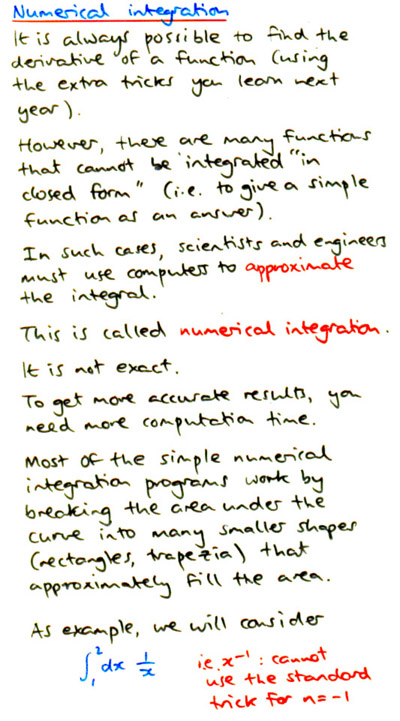 Numerical integration
It is always possible to find the
derivative of a function (using
the extra tricks you learn next
year).
However, there are many functions
that cannot be integrated "in
closed form" (i.e. to give a simple
function as an answer).
In such cases, scientists and engineers
must use computers to approximate
the integral.
This is called numerical integration.
It is not exact.
To get more accurate results, you
need more computation time.
Most of the simple numerical
integration programs work by
breaking the area under the
curve into many smaller shapes
(rectangles, trapezia) that
approximately fill the area.
As example, we will consider
∫₁² dx 1/x i.e. x⁻¹ : cannot
use the standard
trick for n=-1